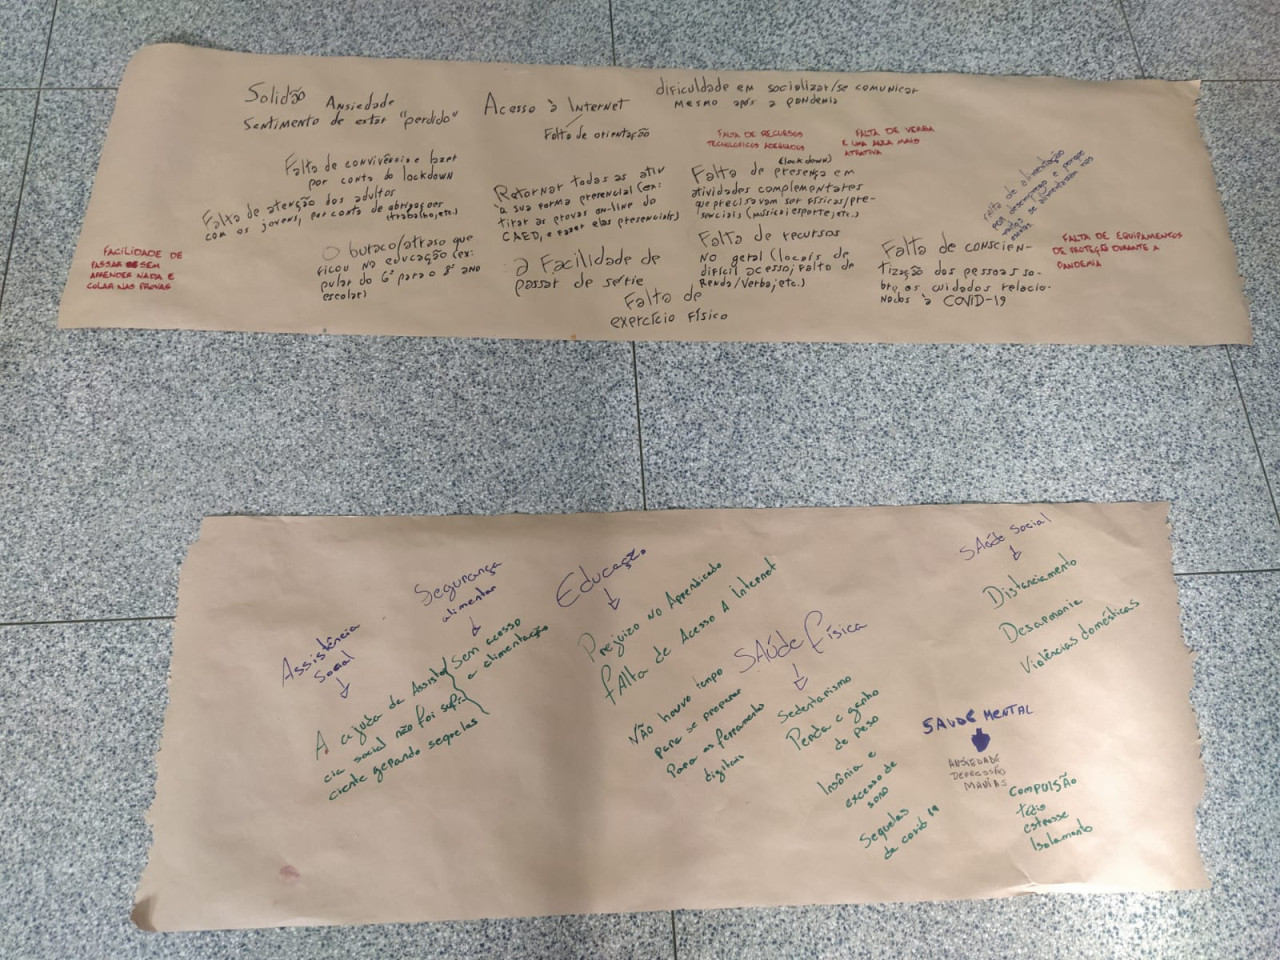 Solidão
Ansiedade
Sentimento de estar "perdido"
Acesso à Internet
Falta de orientação
dificuldade em socializar/se comunicar
mesmo após a pandemia
FALTA DE RECURSOS
TECNOLOGICOS ADEQUADOS
FALTA DE VERBA
E UMA AULA MAIS
ATRATIVA
Falta de convivência e lazer
por conta do lockdown
Falta de atenção dos adultos
com os jovens, por conta de obrigações
(trabalho, etc.)
Retornar todas as ativ
à sua forma presencial (ex:
tirar as provas on-line do
CAED, e fazer elas presenciais)
(lockdown)
Falta de presença em
atividades complementares
que precisavam ser físicas/pre-
senciais (música, esporte, etc.)
Falta de alimentação
por desemprego e porque
vários se alimentavam nas
escolas
FACILIDADE DE
PASSAR SEM
APRENDER NADA E
COLAR NAS PROVAS
O buraco/atraso que
ficou na educação (ex:
pular do 6° para o 8° ano
escolar)
a Facilidade de
passar de série
Falta de
exercício físico
Falta de recursos
no geral (locais de
difícil acesso, falta de
Renda/verba, etc.)
Falta de conscien-
tização das pessoas so-
bre os cuidados relacio-
nados à COVID-19
FALTA DE EQUIPAMENTOS
DE PROTEÇÃO DURANTE A
PANDEMIA
Assistência
Social
A ajuda da Assistên
cia social não foi sufi
ciente gerando sequelas
Segurança
alimentar
Sem acesso
a alimentação
Educação
Prejuizo no Aprendizado
falta de Acesso A internet
Não houve tempo
para se preparar
Para as ferramenta
digitais
SAúde física
Sedentarismo
Perda e ganho
de peso
Insônia e
excesso de
sono
Sequelas
da covid 19
SAúde Social
Distanciamento
Desarmonia
Violências domésticas
SAUDE MENTAL
ANSIEDADE
DEPRESSÃO
MANIAS
COMPULSÃO
estresse
Isolamento